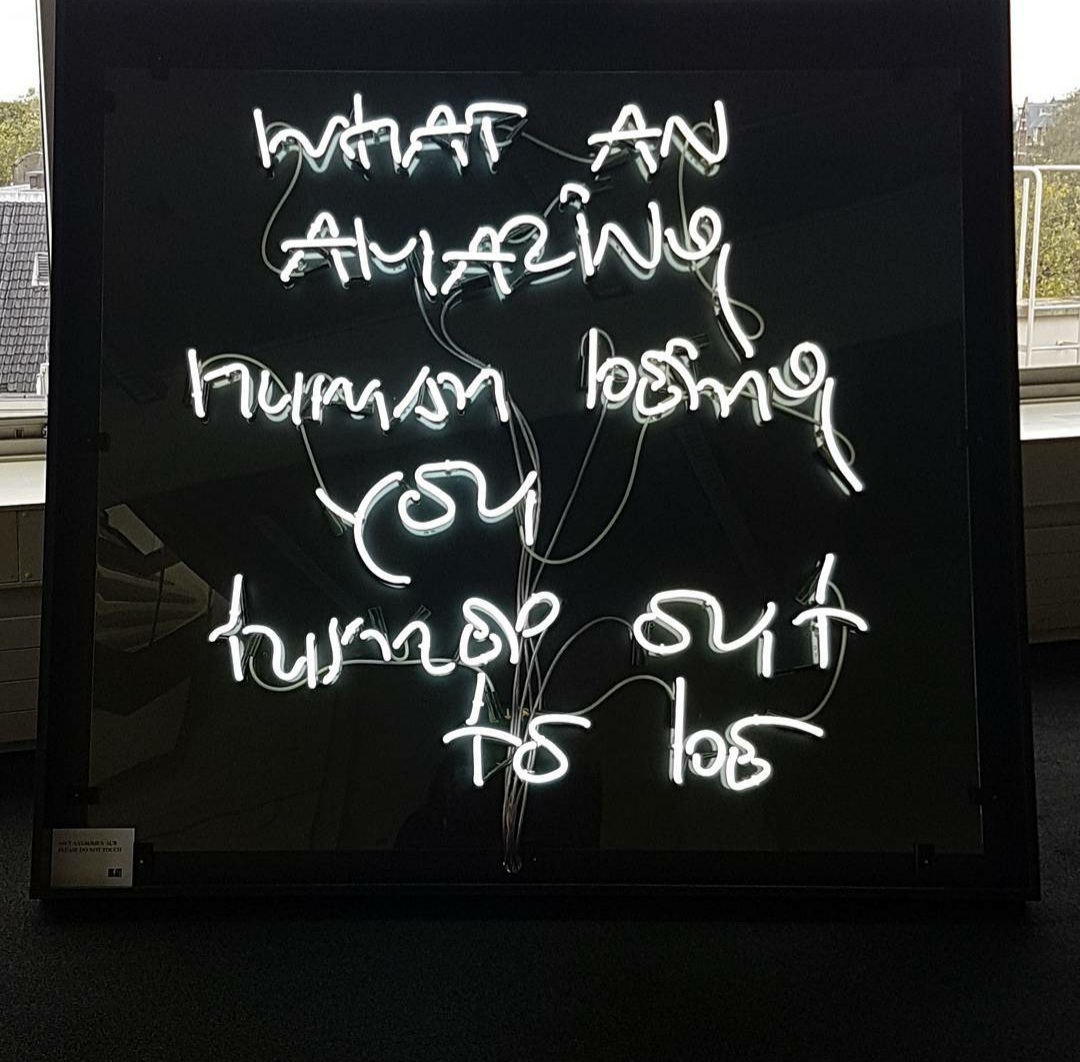 WHAT AN
AMAZING
human being
you
turned out
to be
PLEASE DO NOT TOUCH